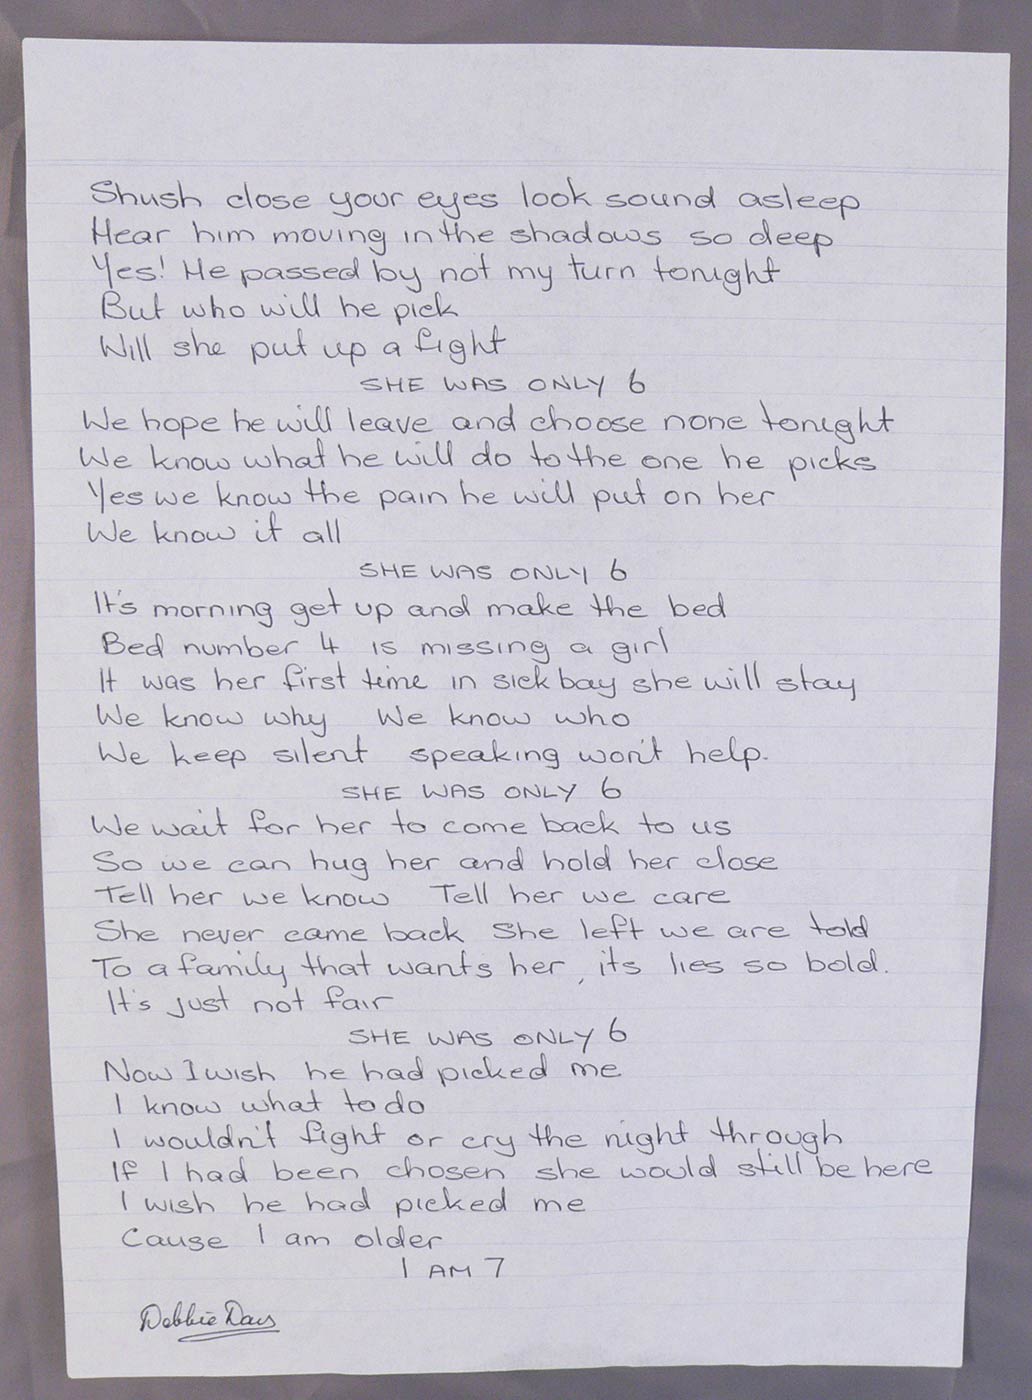 Shush close your eyes look sound asleep
Hear him moving in the shadows so deep
Yes! He passed by not my turn tonight
But who will he pick
Will she put up a fight
SHE WAS ONLY 6
We hope he will leave and choose none tonight
We know what he will do to the one he picks
Yes we know the pain he will put on her
We know it all
SHE WAS ONLY 6
It's morning get up and make the bed
Bed number 4 is missing a girl
It was her first time in sick bay she will stay
We know why We know who
We keep silent speaking won't help.
SHE WAS ONLY 6
We wait for her to come back to us
So we can hug her and hold her close
Tell her we know Tell her we care
She never came back She left we are told
To a family that wants her, its lies so bold.
It's just not fair
SHE WAS ONLY 6
Now I wish he had picked me
I know what to do
I wouldn't fight or cry the night through
If I had been chosen she would still be here
I wish he had picked me
Cause I am older
I AM 7
Debbie Davs